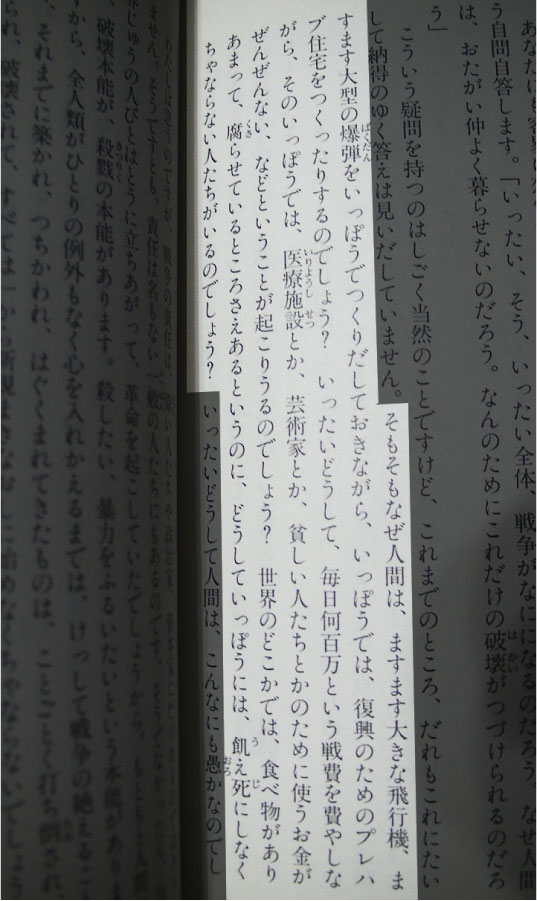 う自問自答します。「いったい、そう、いったい全体、戦争がなにになるのだろう なぜ人間
は、おたがい仲よく暮らせないのだろう。なんのためにこれだけの破壊がつづけられるのだろ
う」
こういう疑問を持つのはしごく当然のことですけど、これまでのところ、だれもこれにたい
して納得のゆく答えは見いだしていません。そもそもなぜ人間は、ますます大きな飛行機、ま
すます大型の爆弾をいっぽうでつくりだしておきながら、いっぽうでは、復興のためのプレハ
ブ住宅をつくったりするのでしょう? いったいどうして、毎日何百万という戦費を費やしな
がら、そのいっぽうでは、医療施設とか、芸術家とか、貧しい人たちとかのために使うお金が
ぜんぜんない、などということが起こりうるのでしょう? 世界のどこかでは、食べ物があり
あまって、腐らせているところさえあるというのに、どうしていっぽうには、飢え死にしなく
ちゃならない人たちがいるのでしょう? いったいどうして人間は、こんなにも愚かなのでし
ません。そうですとも、責任は名もない一般の人たちにもあるのです
界じゅうの人びとはとうに立ちあがって、革命を起こしていたでしょうから。
破壊本能が、殺戮の本能があります。殺したい、暴力をふるいたいという本能があり
すから、全人類がひとりの例外もなく心を入れかえるまでは、けっして戦争の絶えるこ
、それまでに築かれ、つちかわれ、はぐくまれてきたものは、ことごとく打ち倒され、
れ、破壊されて、すべては一から